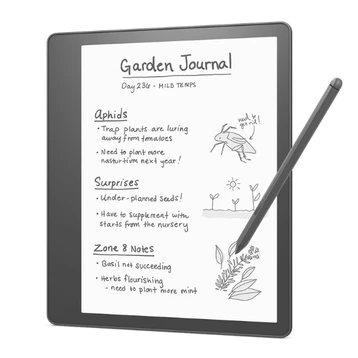 Garden Journal
Day 236 - MILD TEMPS
Aphids
• Trap plants are luring
away from tomatoes
• Need to plant more
nasturtium next year!
Surprises
• Under-planned seeds!
• Have to supplement with
starts from the nursery
Zone 8 Notes
• Basil not succeeding
• Herbs flourishing
- need to plant more mint